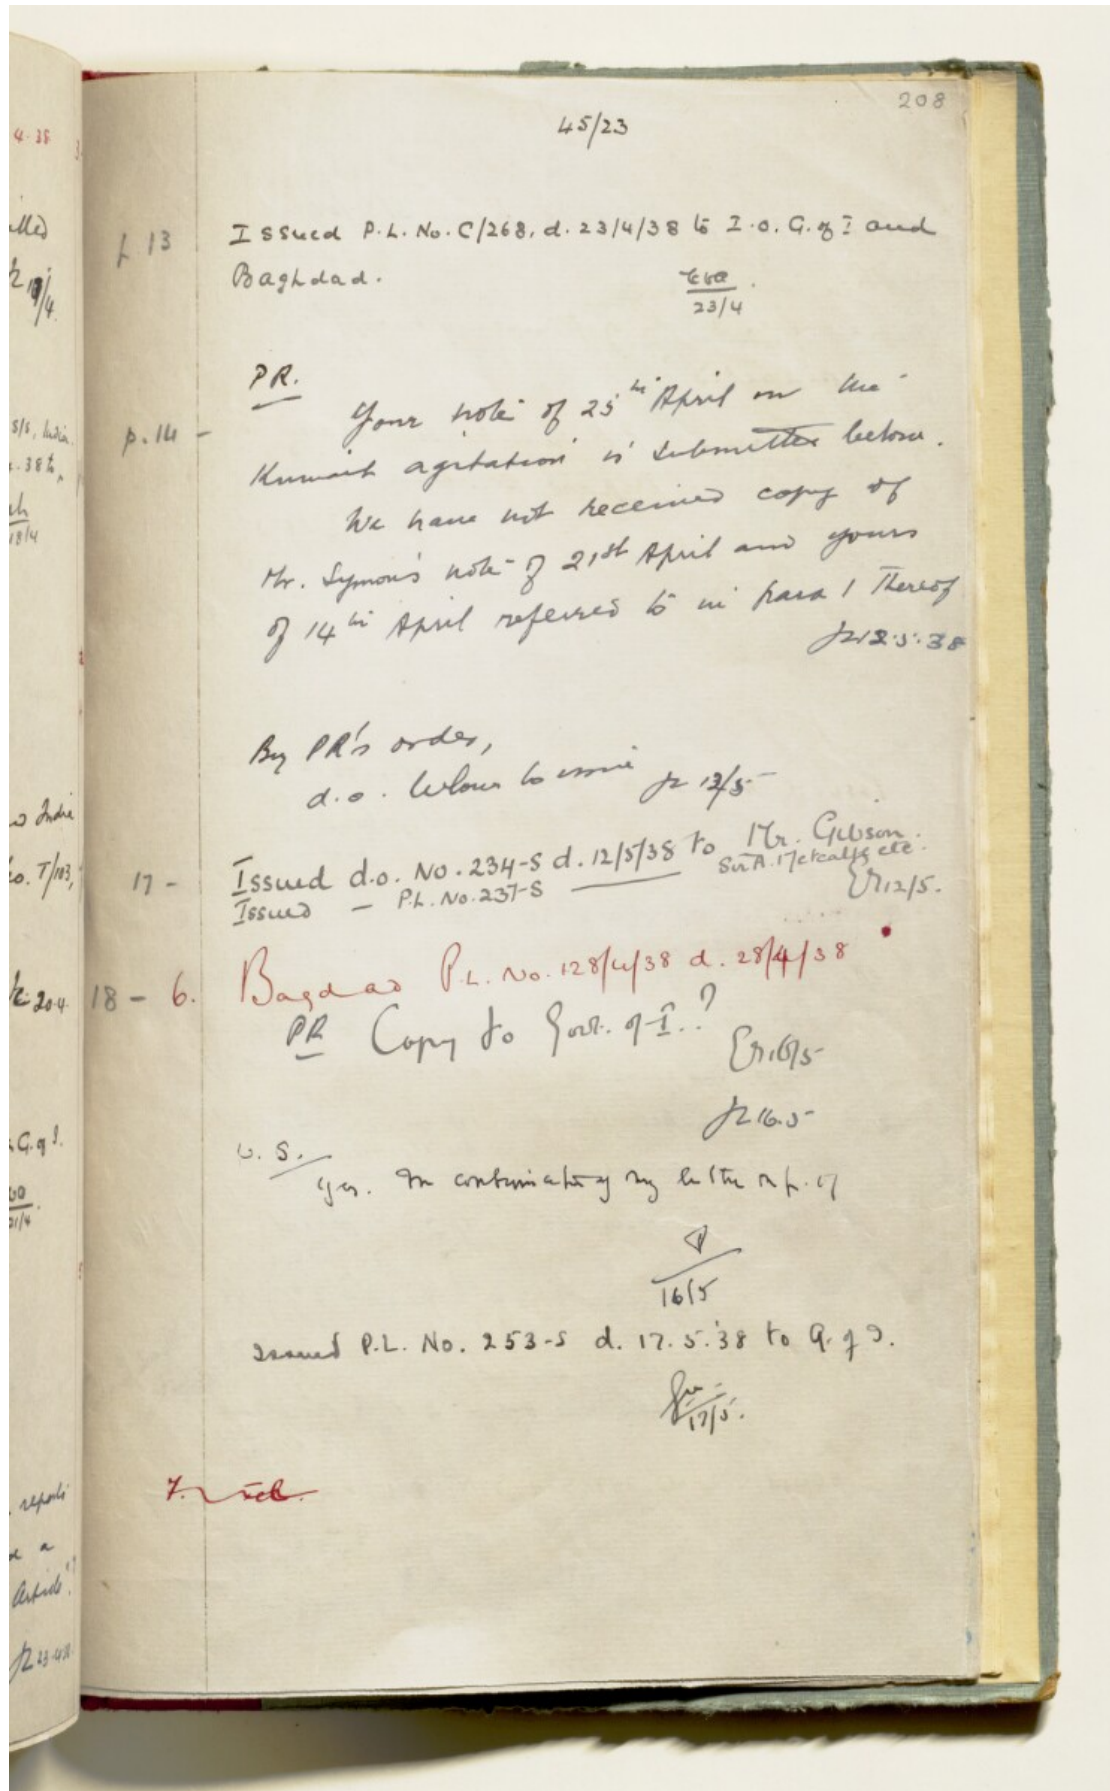 208
45/23
p. 13 Issued P.L. No. C/268, d. 23/4/38 to I.O. G. of I and
Baghdad.
23/4
PR.
p. 14 - Your note of 25th April on the
Kuwait agitation is submitted below.
We have not received copy of
Mr. Symon's note of 21st April and yours
of 14th April referred to in para 1 thereof
12.5.38
By PR's order,
d.o. below to issue 12/5
17 - Issued d.o. No. 234-S d. 12/5/38 to Mr. Gibson.
Sir A. Metcalfe etc.
Issued - P.L. No. 237-S
12/5.
18 - 6. Bagdad P.L. No. 128/4/38 d. 28/4/38
PR Copy to Govt. of I.?
16/5
16.5
U.S.
Yes. In continuation of my letter on p. 17
16/5
Issued P.L. No. 253-S d. 17.5.38 to G. of I.
17/5.
7.
4.38
20.4
G. of I.
21/4.
reports
a
Article
23.4.38